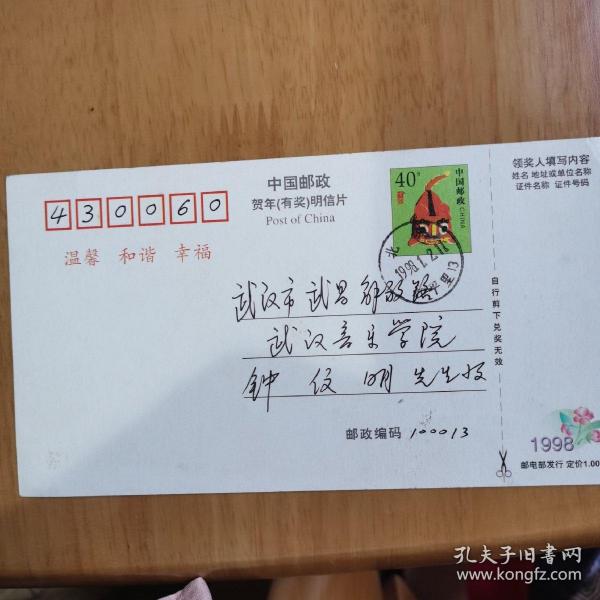 430060
中国邮政
贺年(有奖)明信片
Post of China
40分
中国邮政
CHINA
北
1998.1.2.18
里13
温馨 和谐 幸福
武汉市 武昌 解放路
武汉音乐学院
钟 俊 明 先生收
邮政编码 100013
领奖人填写内容
姓名 地址或单位名称
证件名称 证件号码
自行剪下兑奖无效
1998
邮电部发行 定价1.00
孔夫子旧书网
www.kongfz.com